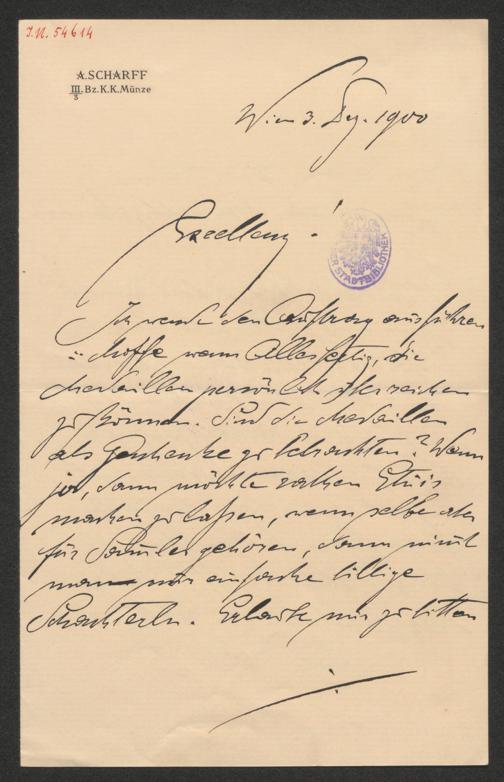 J.N. 54614
A.SCHARFF
III/3 Bz.K.K.Münze
Wien 3. Dez. 1900
Excellenz !
STADTBIBLIOTHEK
Ich werde den Auftrag ausführen
u. hoffe wann Alles fertig, die
Medaillen persönlich überreichen
zu können. Sind die Medaillen
als Geschenke zu betrachten? Wenn
ja, dann möchte rathen Etuis
machen zu lassen, wenn selbe aber
für Sammler gehören, dann nimmt
man nur einfache billige
Schachterln. Erlaube mir zu bitten